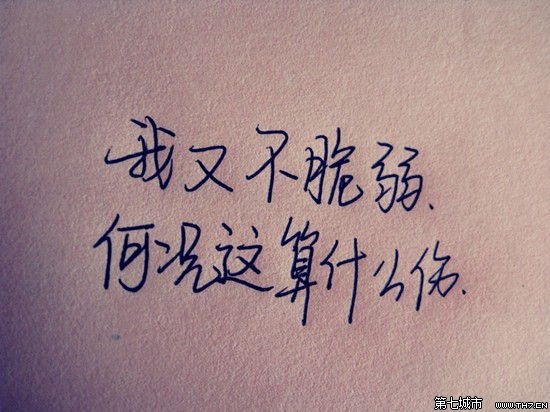 我又不脆弱、
何况这算什么伤、
第七城市 WWW.TH7.CN